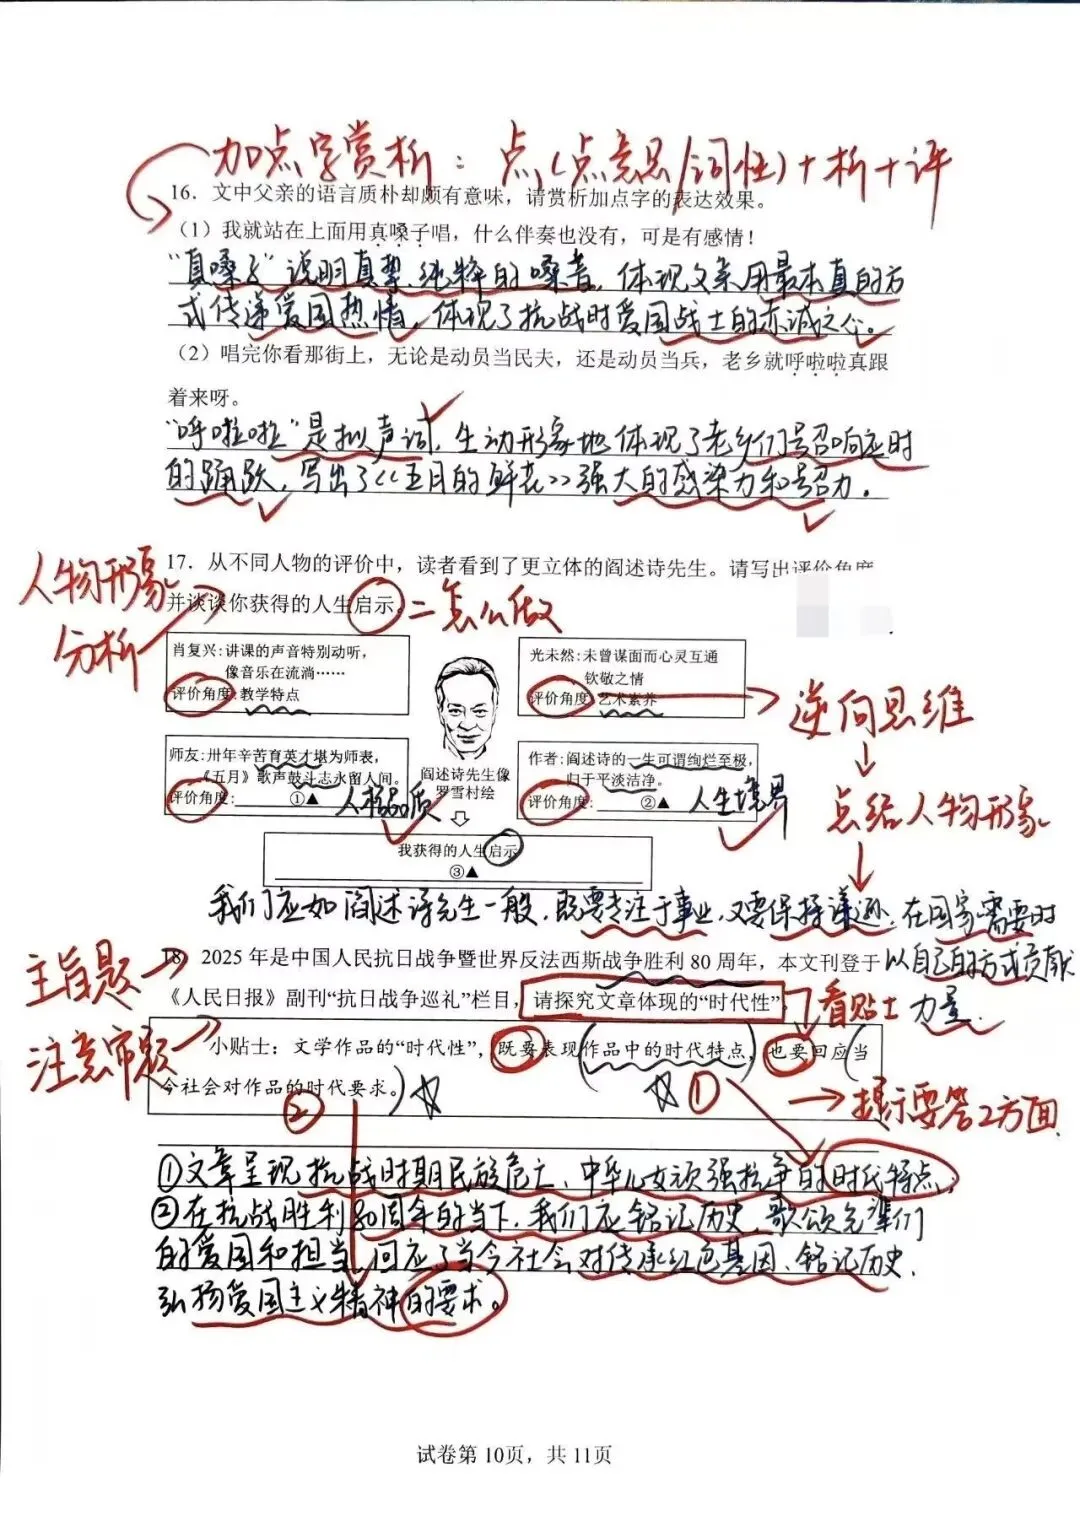 加点字赏析：点(点意思/词性)+析+评
16．文中父亲的语言质朴却颇有意味，请赏析加点字的表达效果。
（1）我就站在上面用真嗓子唱，什么伴奏也没有，可是有感情！
“真嗓子”说明真挚、纯粹的嗓音，体现父亲用最本真的方
式传递爱国热情，体现了抗战时爱国战士的赤诚之心。
（2）唱完你看那街上，无论是动员当民夫，还是动员当兵，老乡就呼啦啦真跟
着来呀。
“呼啦啦”是拟声词，生动形象地体现了老乡们号召响应时
的踊跃，写出了《五月的鲜花》强大的感染力和号召力。
人物形象
分析
17．从不同人物的评价中，读者看到了更立体的阎述诗先生。请写出评价角度
并谈谈你获得的人生启示。
=怎么做
肖复兴：讲课的声音特别动听，
像音乐在流淌……
评价角度：教学特点
光未然：未曾谋面而心灵互通
钦敬之情
评价角度：艺术素养
逆向思维
师友：卅年辛苦育英才堪为师表，
《五月》歌声鼓斗志永留人间。
评价角度：①▲
人格品质
阎述诗先生像
罗雪村绘
作者：阎述诗的一生可谓绚烂至极，
归于平淡洁净。
评价角度：②▲
人生境界
总结人物形象
我获得的人生启示
③▲
我们应如阎述诗先生一般，既要专注于事业，又要保持谦逊，在国家需要时
以自己的方式贡献
力量.
主旨题
注意审题
18．2025年是中国人民抗日战争暨世界反法西斯战争胜利80周年，本文刊登于
《人民日报》副刊“抗日战争巡礼”栏目，请探究文章体现的“时代性”
看贴士
小贴士：文学作品的“时代性”，既要表现作品中的时代特点，也要回应当
今社会对作品的时代要求。
②
①
提示要答2方面.
①文章呈现抗战时期民族危亡、中华儿女顽强抗争的时代特点；
②在抗战胜利80周年的当下，我们应铭记历史，歌颂先辈们
的爱国和担当，回应了当今社会对传承红色基因、铭记历史，
弘扬爱国主义精神的要求。
试卷第10页，共11页